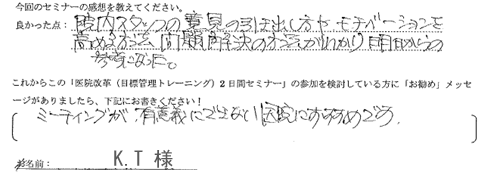 今回のセミナーの感想を教えてください。
良かった点：院内スタッフの意見の引き出し方や モチベーションを
高める方法 問題解決の方法がわかり 明日からの
参考になった。
これからこの「医院改革（目標管理トレーニング）２日間セミナー」の参加を検討している方に「お勧め」メッセ
ージがありましたら、下記にお書きください！
ミーティングが 有意義にできない医院におすすめです。
お名前： K.T 様